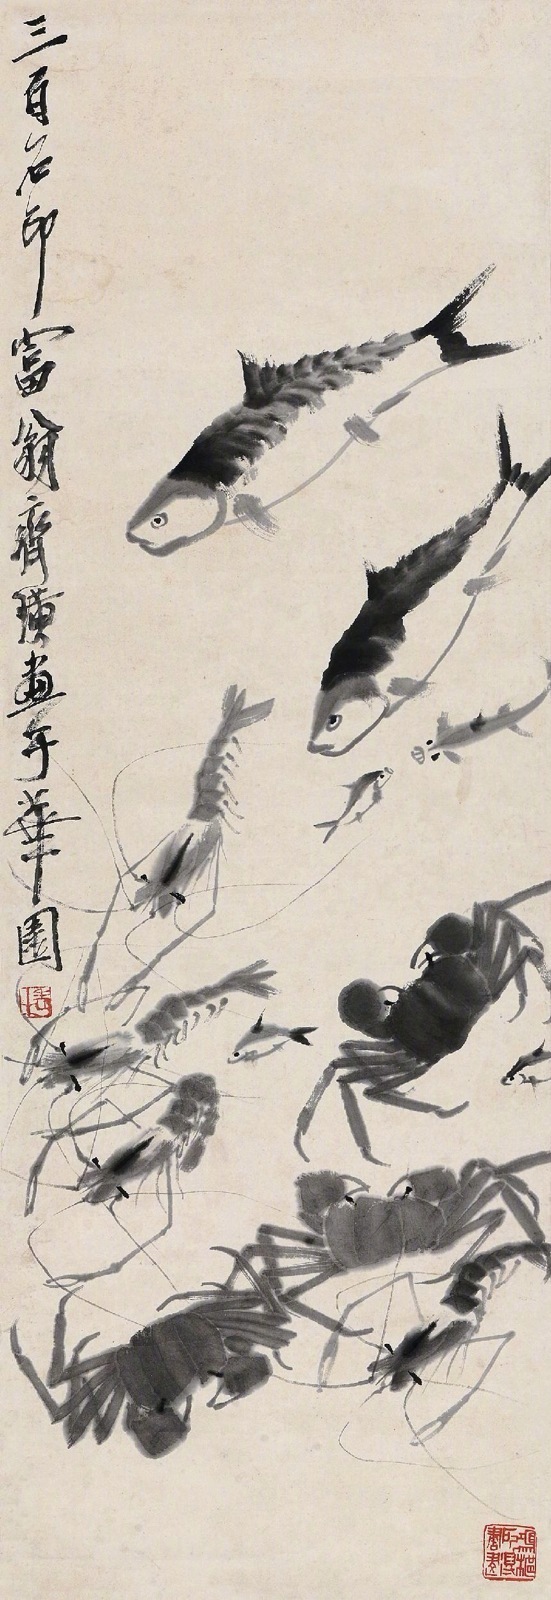 三百石印富翁齊璜畫于華園